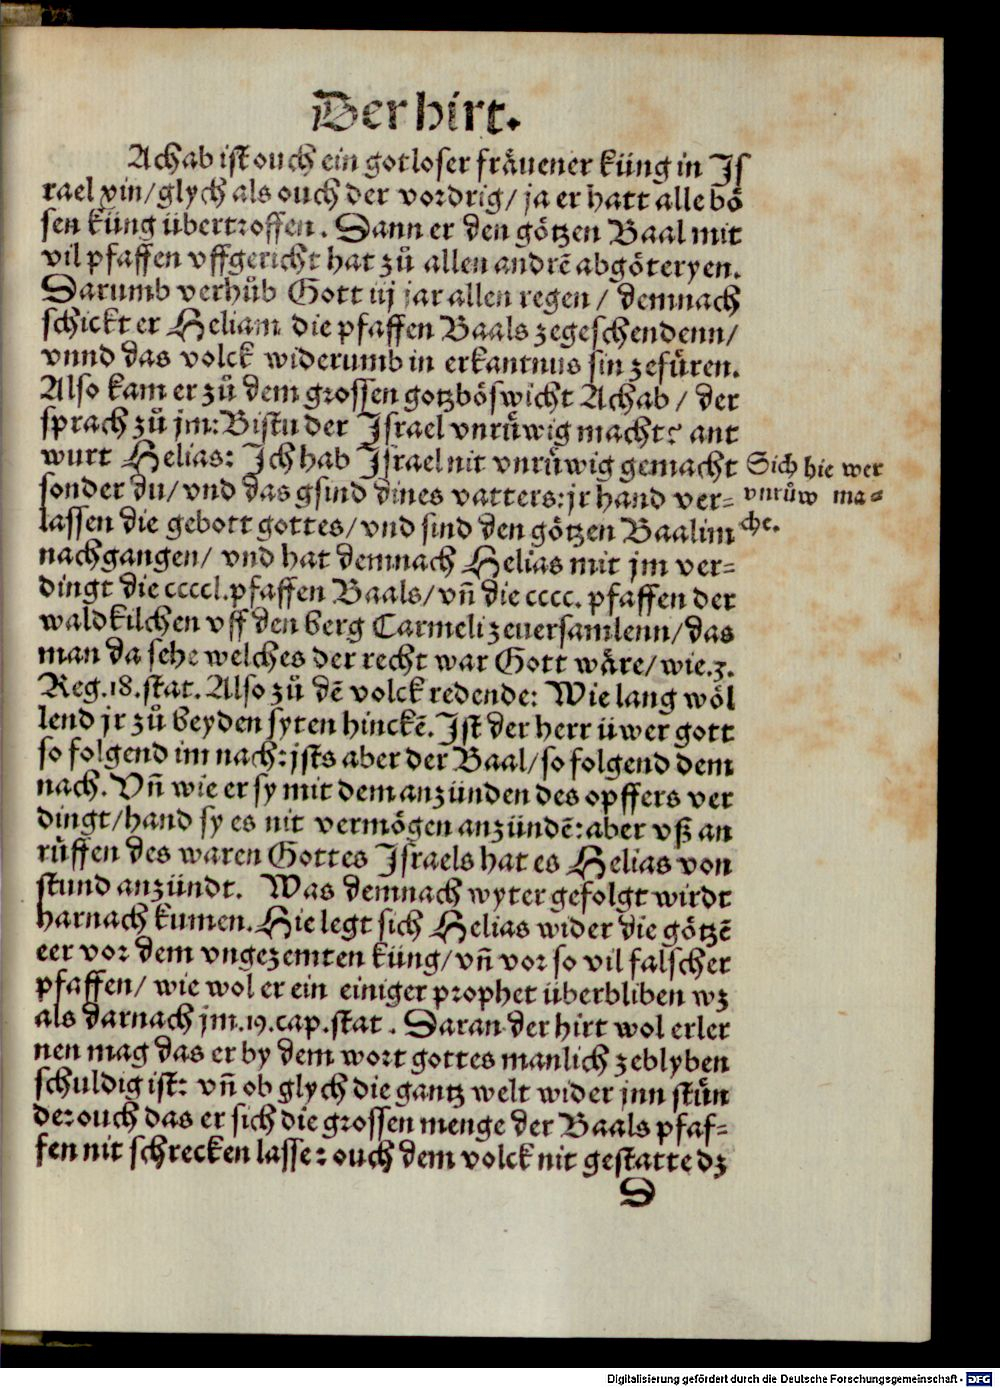 Der hirt.
Achab ist ouch ein gotloser fräuener küng in Js
rael xin/glych als ouch der vordrig/ ja er hatt alle bö
sen küng übertroffen. Dann er den götzen Baal mit
vil pfaffen vffgericht hat zů allen andrē abgöteryen.
Darumb verhůb Gott iij jar allen regen / demnach
schickt er Heliam die pfaffen Baals zegeschendenn/
vnnd das volck widerumb in erkantnus sin zefüren.
Also kam er zů dem grossen gotzböswicht Achab / der
sprach zů jm: Bistu der Israel vnrüwig macht? ant
wurt Helias: Ich hab Israel nit vnrüwig gemacht
sonder du/ vnd das gsind dines vatters: jr hand ver-
lassen die gebott gottes/ vnd sind den götzen Baalim
nachgangen/ vnd hat demnach Helias mit jm ver-
dingt die ccccl. pfaffen Baals/ vn̄ die cccc. pfaffen der
waldkilchen vff den berg Carmeli zeuersamlenn/ das
man da sehe welches der recht war Gott wäre/ wie.3.
Reg.18.stat. Also zů dē volck redende: Wie lang wöl
lend jr zů beyden syten hinckē. Ist der herr üwer gott
so folgend im nach: jsts aber der Baal/ so folgend dem
nach. Vn̄ wie er sy mit dem anzünden des opffers ver
dingt/hand sy es nit vermögen anzündē: aber vß an
rüffen des waren Gottes Israels hat es Helias von
stund anzündt. Was demnach wyter gefolgt wirdt
harnach kumen. Hie legt sich Helias wider die götzē
eer vor dem vngezemten küng/ vn̄ vor so vil falscher
pfaffen/ wie wol er ein einiger prophet überbliben wz
als darnach jm.19.cap.stat. Daran der hirt wol erler
nen mag das er by dem wort gottes manlich zeblyben
schuldig ist: vn̄ ob glych die gantz welt wider jnn stün
de: ouch das er sich die grossen menge der Baals pfaf-
fen nit schrecken lasse: ouch dem volck nit gestatte dz
D
Sich hie wer
vnrůw ma-
che.
Digitalisierung gefördert durch die Deutsche Forschungsgemeinschaft - DFG